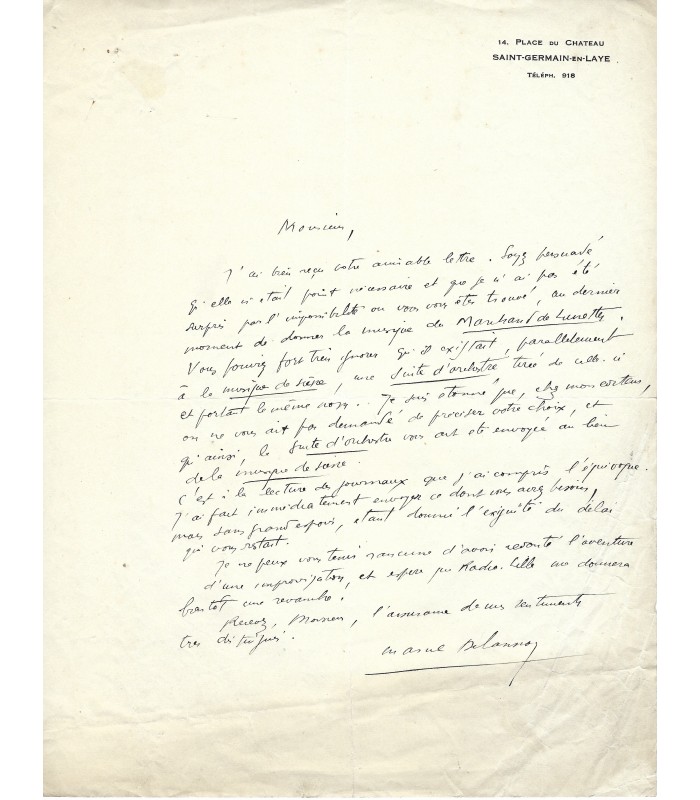 14, PLACE DU CHATEAU
SAINT-GERMAIN-EN-LAYE
TÉLÉPH. 918
Monsieur,
J'ai bien reçu votre aimable lettre. Soyez persuadé
qu'elle n'était point nécessaire et que je n'ai pas été
surpris par l'impossibilité où vous vous êtes trouvé, au dernier
moment de donner la musique du Marchand de Lunettes.
Vous pouviez fort bien ignorer qu'il existait, parallèlement
à la musique de scène, une Suite d'orchestre tirée de celle-ci
et portant le même nom. Je suis étonné que, chez mon éditeur,
on ne vous ait pas demandé de préciser votre choix, et
qu'ainsi, la Suite d'orchestre vous ait été envoyée au lieu
de la musique de scène.
C'est à la lecture des journaux que j'ai compris l'équivoque.
J'ai fait immédiatement envoyer ce dont vous aviez besoin,
mais sans grand espoir, étant donné l'exiguité du délai
qui vous restait.
Je ne peux vous tenir rancune d'avoir redouté l'aventure
d'une improvisation, et espère que Radio-Lille me donnera
bientôt une revanche.
Recevez, Monsieur, l'assurance de mes sentiments
très distingués.
Marcel Delannoy